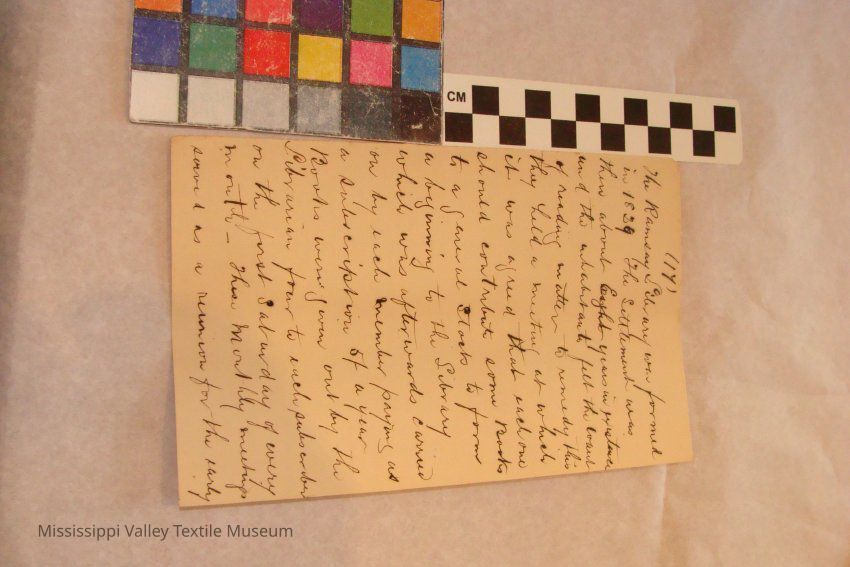 (14)
The Ramsay Library was formed
in 1829 The Settlement was
then about Eight years in existence
and the inhabitants felt the want
of reading matter to remedy this
they held a meeting at which
it was agreed that each one
should contribute some Books
to a general Stock to form
a beginning to the Library
which was afterwards carried
on by each member paying as
a subscription $1 a year
Books were given out by the
Librarian four to each subscriber
on the first Saturday of every
month - These Monthly meetings
served as a reunion for the early
CM
Mississippi Valley Textile Museum